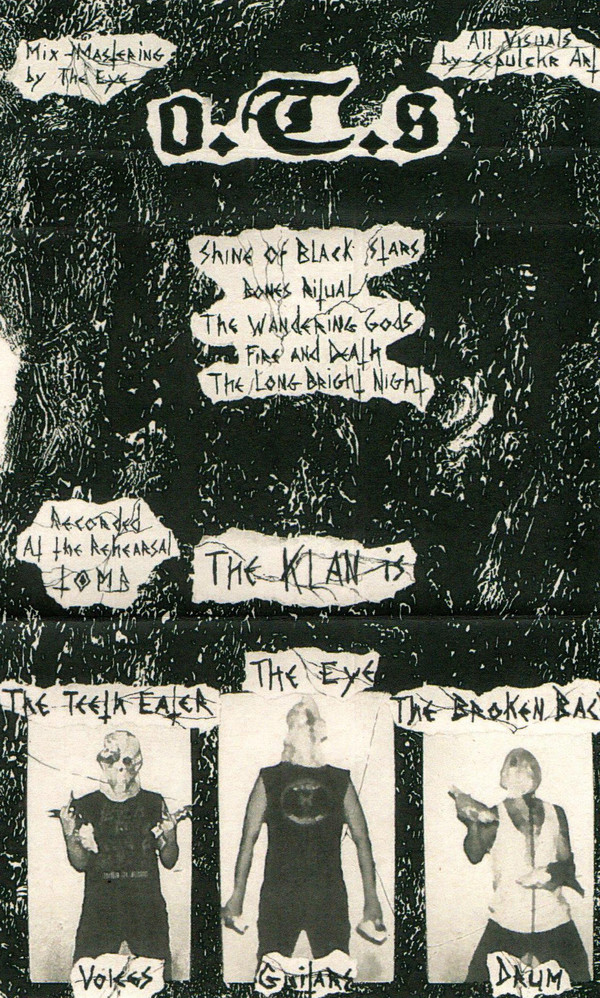 Mix + Mastering
by The Eye
All Visuals
by Sepulchr Art
O.T.S
Shine of Black Stars
Bones Ritual
The Wandering Gods
Fire and Death
The Long Bright Night
Recorded
At the Rehearsal
TOMB
The KLAN is
The Eye
The Teeth Eater
The Broken Bac
Voices
Guitars
Drum